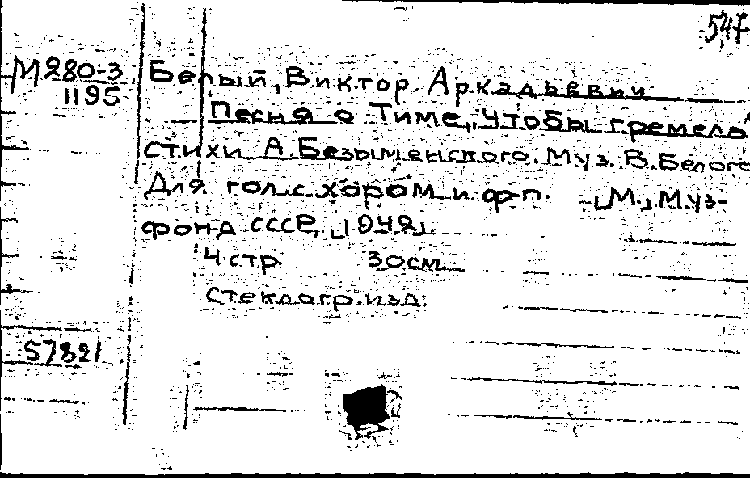 547
М280-3
1195
Белый, Виктор Аркадьевич
Песня о Тиме „Чтобы гремела"
стихи А. Безыменского. Муз. В. Белого
Для гол. с хором и ф-п. - [М.], Муз-
фонд СССР, [1948].
4 стр. 30 см.
Стеклогр. изд.
57821